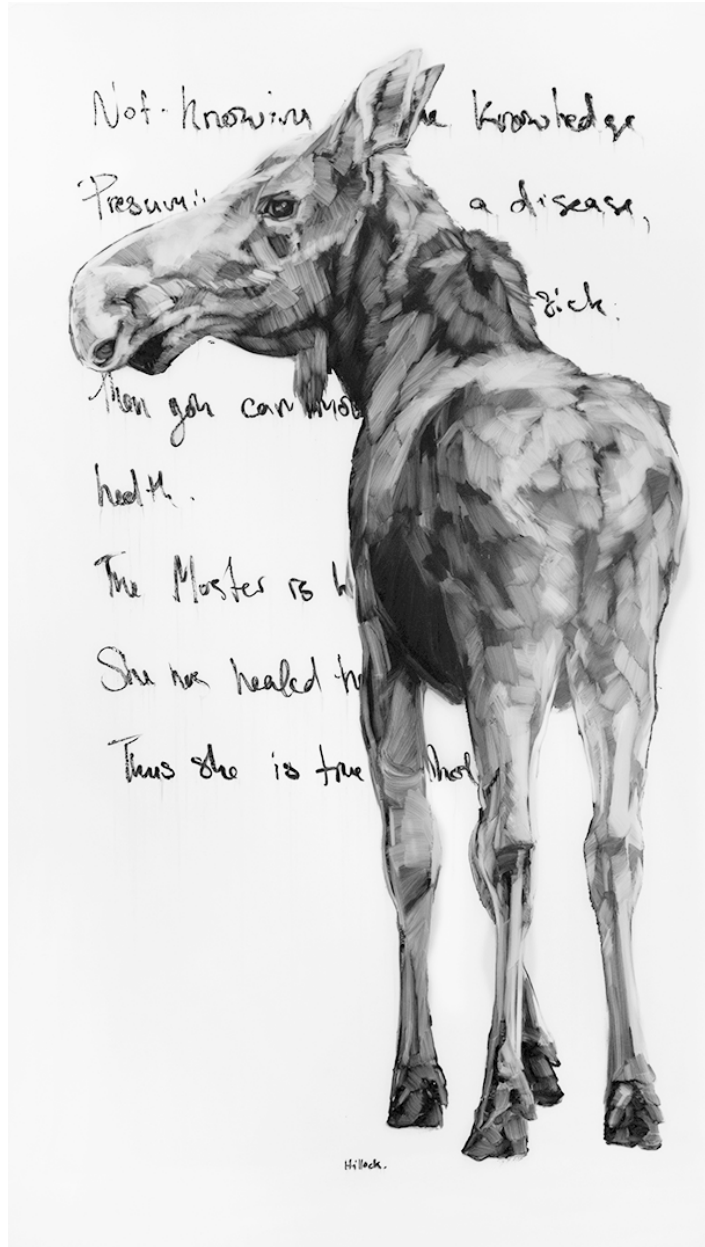 Not-knowing knowledge
Presumi a disease,
sick.
Then you can mov
health.
The Master is h
She has healed h
Thus she is true whol
Hillock.